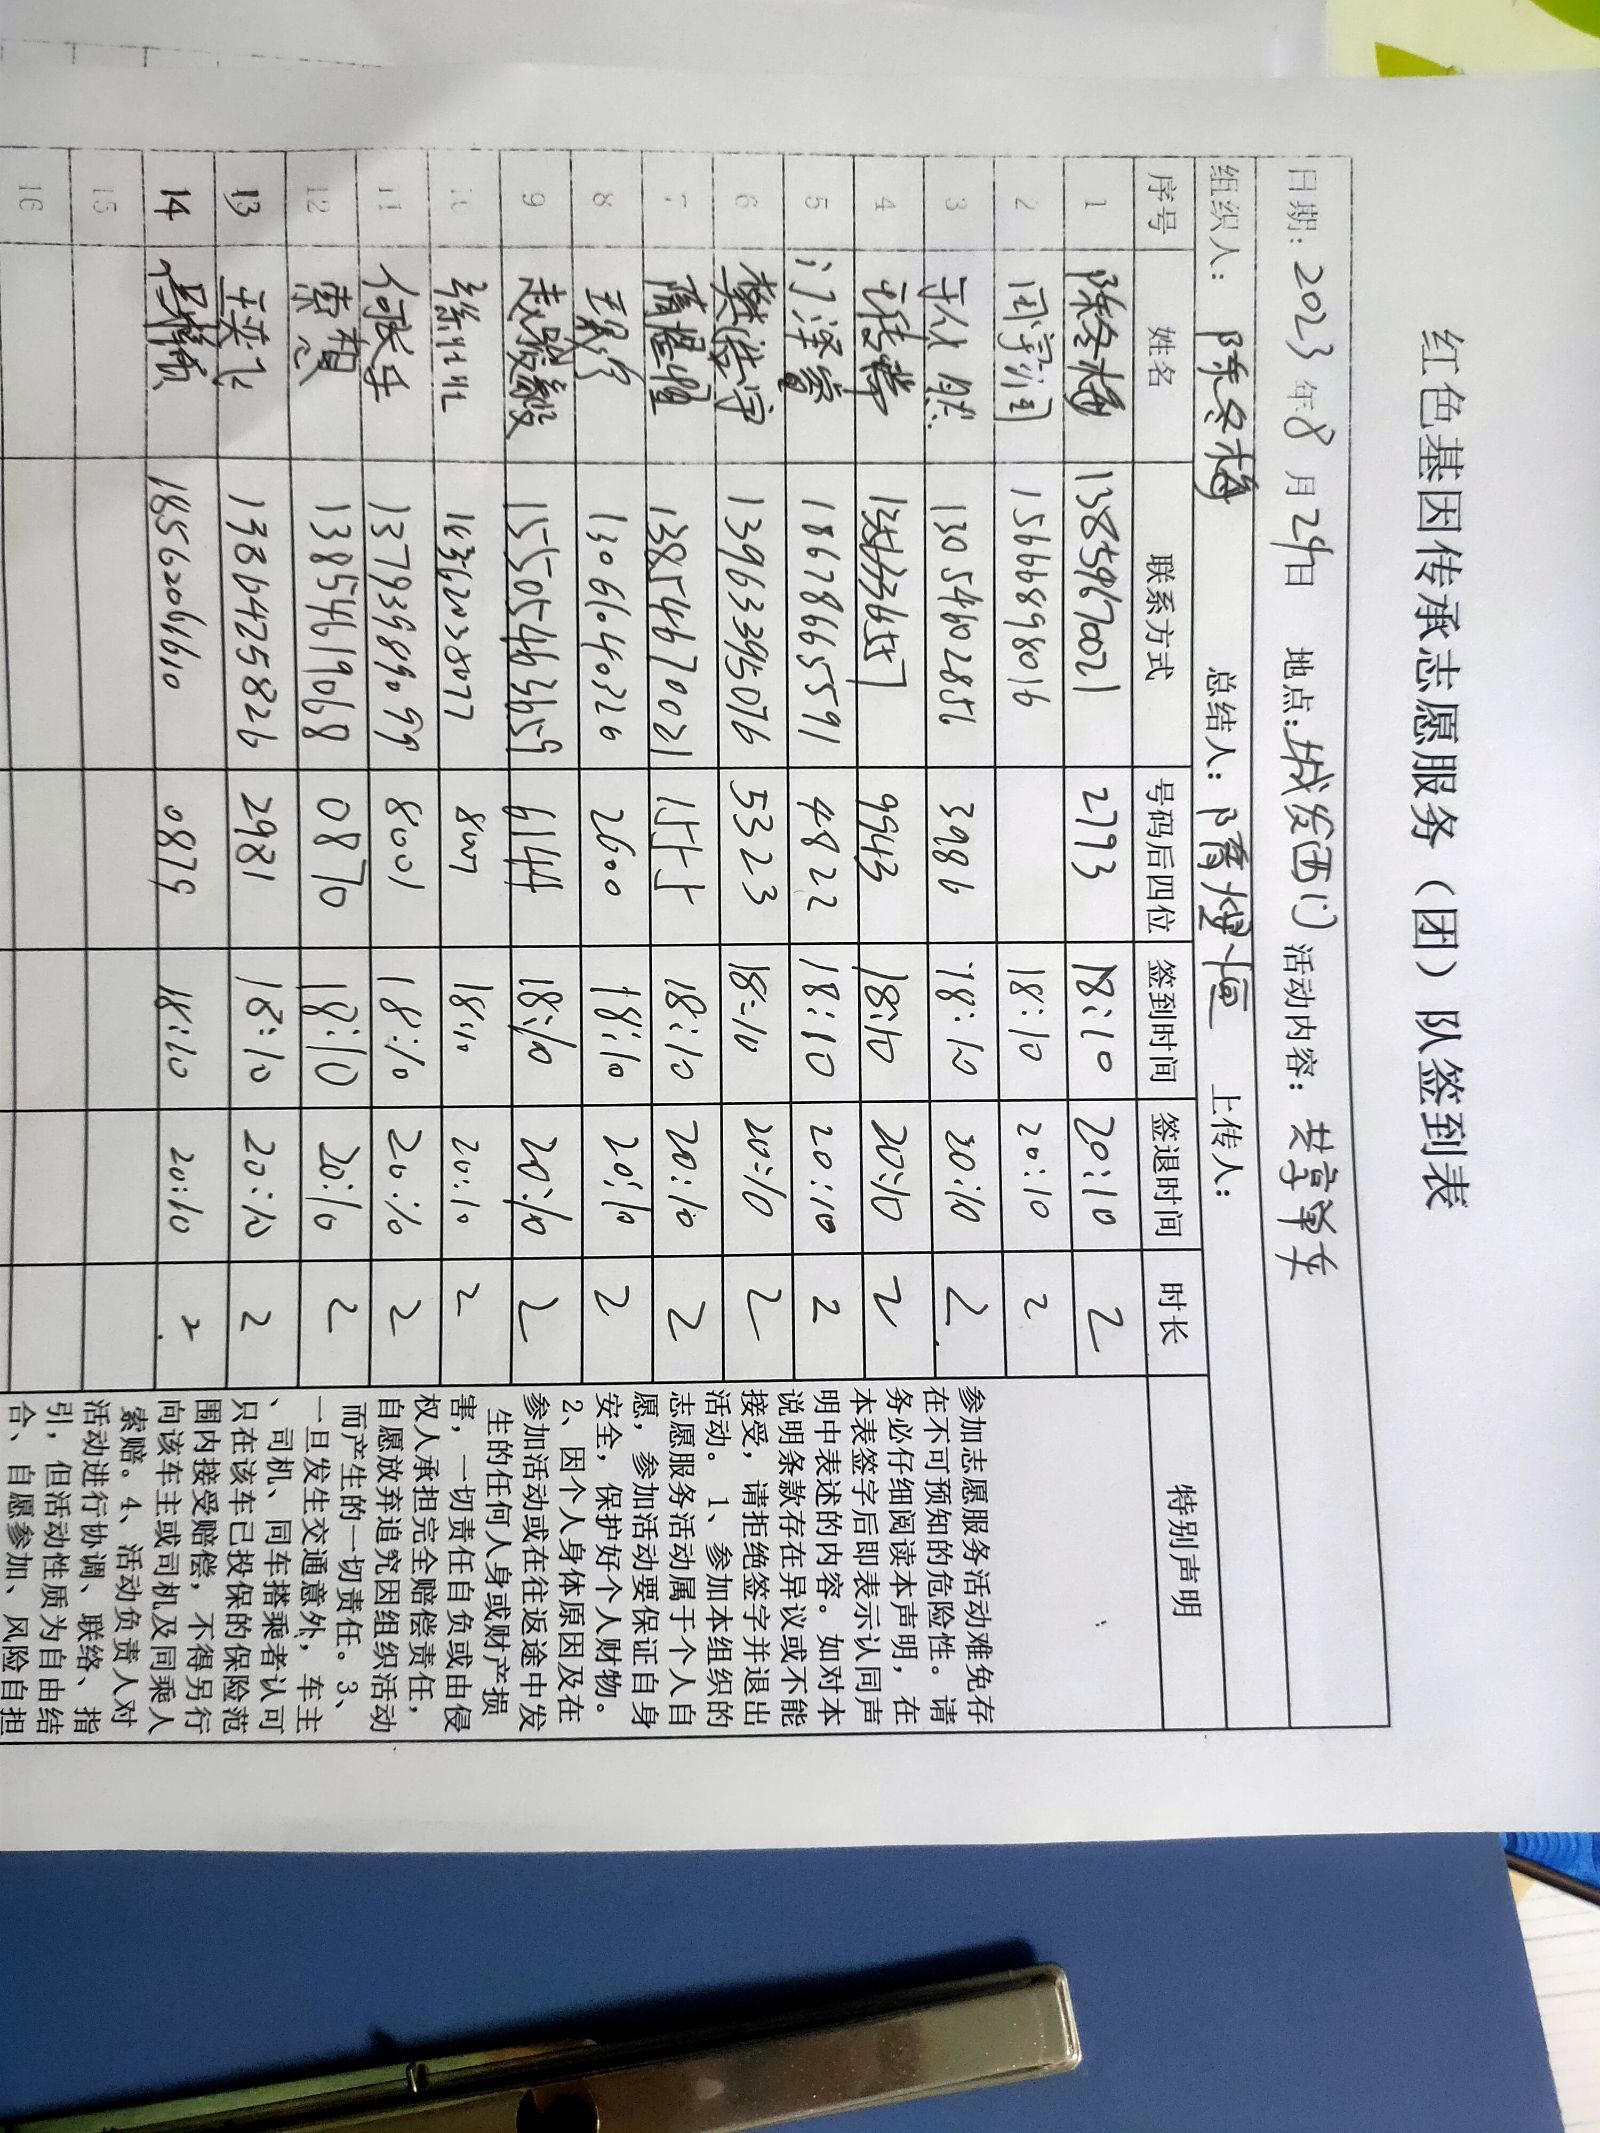 红色基因传承志愿服务（团）队签到表
日期：2023年8月24日 地点：城发西门 活动内容：共享单车
组织人：陈冬梅 总结人： 上传人：
序号 姓名 联系方式 号码后四位 签到时间 签退时间 时长 特别声明
1 陈冬梅 13859670021 2793 18:10 20:10 2
2 15666898016 18:10 20:10 2
3 13054602856 3986 18:10 20:10 2
4 9943 18:10 20:10 2
5 18678665591 4822 18:10 20:10 2
6 13963395076 5323 18:10 20:10 2
7 13854670021 1555 18:10 20:10 2
8 13066040326 2600 18:10 20:10 2
9 赵毅 15505463659 6144 18:10 20:10 2
10 18:10 20:10 2
11 13793989099 8001 18:10 20:10 2
12 索想 13854619068 0870 18:10 20:10 2
13 1386425826 2981 18:10 20:10 2
14 18562061610 0879 18:10 20:10 2
15
16
参加志愿服务活动难免存
在不可预知的危险性。请
务必仔细阅读本声明，在
本表签字后即表示认同声
明中表述的内容。如对本
说明条款存在异议或不能
接受，请拒绝签字并退出
活动。1、参加本组织的
志愿服务活动属于个人自
愿，参加活动要保证自身
安全，保护好个人财物。
2、因个人身体原因及在
参加活动或在往返途中发
生的任何人身或财产损
害，一切责任自负或由侵
权人承担完全赔偿责任，
自愿放弃追究因组织活动
而产生的一切责任。3、
一旦发生交通意外，车主
、司机、同车搭乘者认可
只在该车已投保的保险范
围内接受赔偿，不得另行
向该车主或司机及同乘人
索赔。4、活动负责人对
活动进行协调、联络、指
引，但活动性质为自由结
合、自愿参加、风险自担